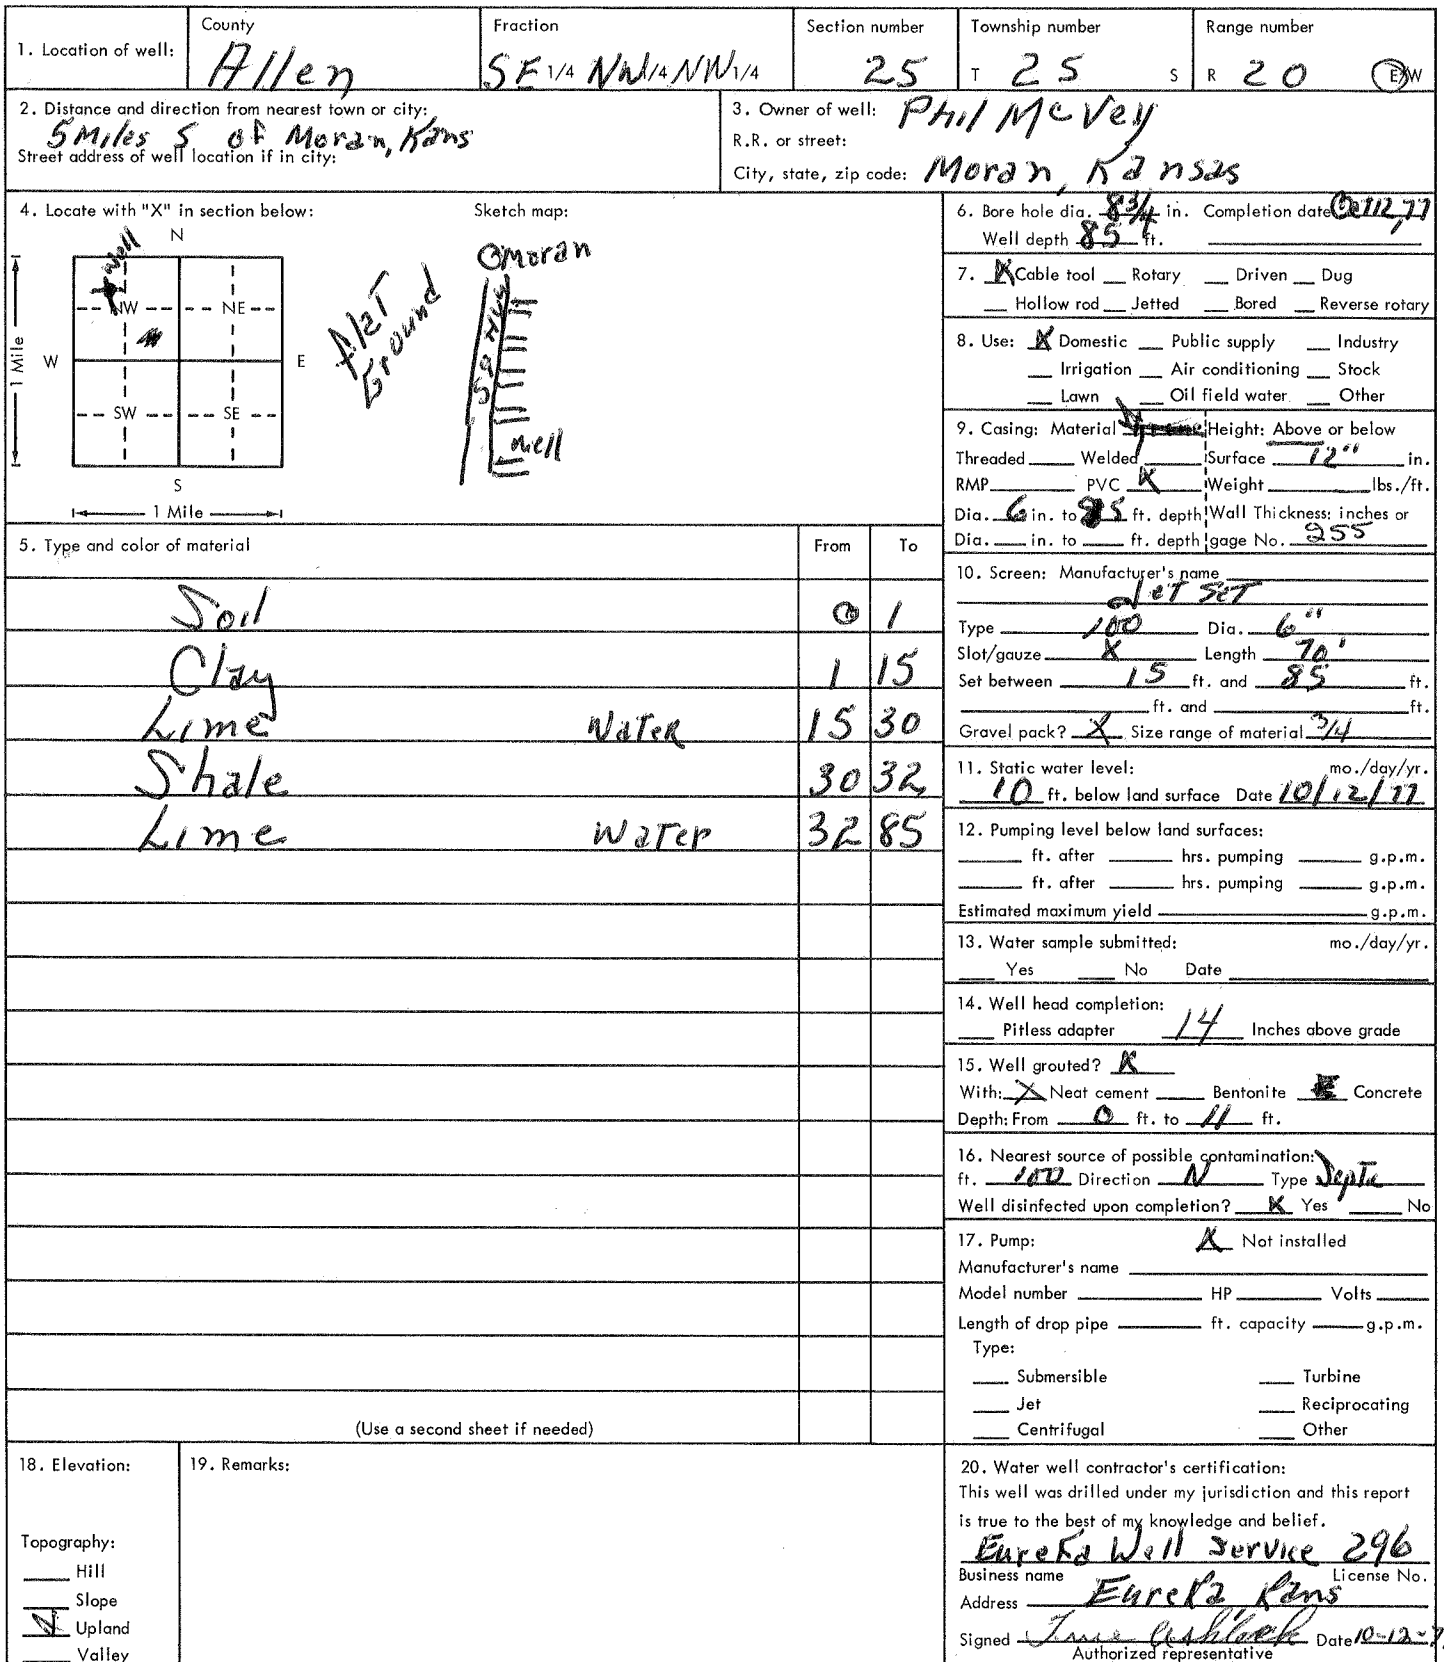 1. Location of well: County Allen Fraction SE 1/4 NW 1/4 NW 1/4 Section number 25 Township number T 25 S Range number R 20 E/W
2. Distance and direction from nearest town or city:
5 Miles S of Moran, Kans
Street address of well location if in city:
3. Owner of well: Phil McVey
R.R. or street:
City, state, zip code: Moran, Kansas
4. Locate with "X" in section below:
N
well
NW NE
W E
SW SE
S
1 Mile
1 Mile
Sketch map:
Moran
Flat
Ground
59 Hwy
well
5. Type and color of material From To
Soil 0 1
Clay 1 15
Lime Water 15 30
Shale 30 32
Lime Water 32 85
(Use a second sheet if needed)
6. Bore hole dia. 8 3/4 in. Completion date Oct 12, 77
Well depth 85 ft.
7. X Cable tool Rotary Driven Dug
Hollow rod Jetted Bored Reverse rotary
8. Use: X Domestic Public supply Industry
Irrigation Air conditioning Stock
Lawn Oil field water Other
9. Casing: Material Height: Above or below
Threaded Welded Surface 12" in.
RMP PVC X Weight lbs./ft.
Dia. 6 in. to 85 ft. depth Wall Thickness: inches or
Dia. in. to ft. depth gage No. 255
10. Screen: Manufacturer's name
Jet Set
Type 100 Dia. 6"
Slot/gauze X Length 70'
Set between 15 ft. and 85 ft.
ft. and ft.
Gravel pack? X Size range of material 3/4
11. Static water level: mo./day/yr.
10 ft. below land surface Date 10/12/77
12. Pumping level below land surfaces:
ft. after hrs. pumping g.p.m.
ft. after hrs. pumping g.p.m.
Estimated maximum yield g.p.m.
13. Water sample submitted: mo./day/yr.
Yes No Date
14. Well head completion:
Pitless adapter 14 Inches above grade
15. Well grouted? X
With: X Neat cement Bentonite Concrete
Depth: From 0 ft. to 11 ft.
16. Nearest source of possible contamination:
ft. 100 Direction N Type Septic
Well disinfected upon completion? X Yes No
17. Pump: X Not installed
Manufacturer's name
Model number HP Volts
Length of drop pipe ft. capacity g.p.m.
Type:
Submersible Turbine
Jet Reciprocating
Centrifugal Other
18. Elevation:
Topography:
Hill
Slope
X Upland
Valley
19. Remarks:
20. Water well contractor's certification:
This well was drilled under my jurisdiction and this report
is true to the best of my knowledge and belief.
Eureka Well Service 296
Business name License No.
Address Eureka Kans
Signed Ashlock Date 10-12-7
Authorized representative